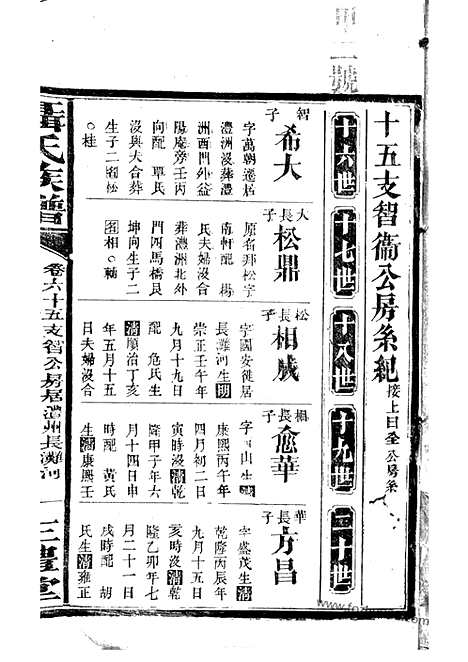 十五支智衞公房糸紀 接上日全公房糸
十六世
十七世
十八世
十九世
二十世
智子
希大
字萬朝遷居
澧洲沒葬澧
洲西門外益
陽庵旁壬丙
向配 覃氏
沒與夫合葬
生子二 松
○桂
大長子
松鼎
原名丹松字
南軒配 楊
氏夫婦沒合
葬澧洲北外
門四馬橋艮
坤向生子二
相○
松長子
相成
字國安徙居
長灘河生明
崇正壬午年
九月十九日
配 危氏生
清順治丁亥
年五月十五
日夫婦沒合
相長子
愈華
字 山生清
康熙丙午年
四月初二日
寅時沒清乾
隆甲子年六
月十四日申
時配 黃氏
生清康熙壬
華長子
方昌
字盛茂生清
乾隆丙辰年
九月十五日
亥時沒清乾
隆乙卯年七
月二十一日
戌時配 胡
氏生清雍正
聶氏族譜
卷六十五支智公房居澧州長灘河
一
三禮堂